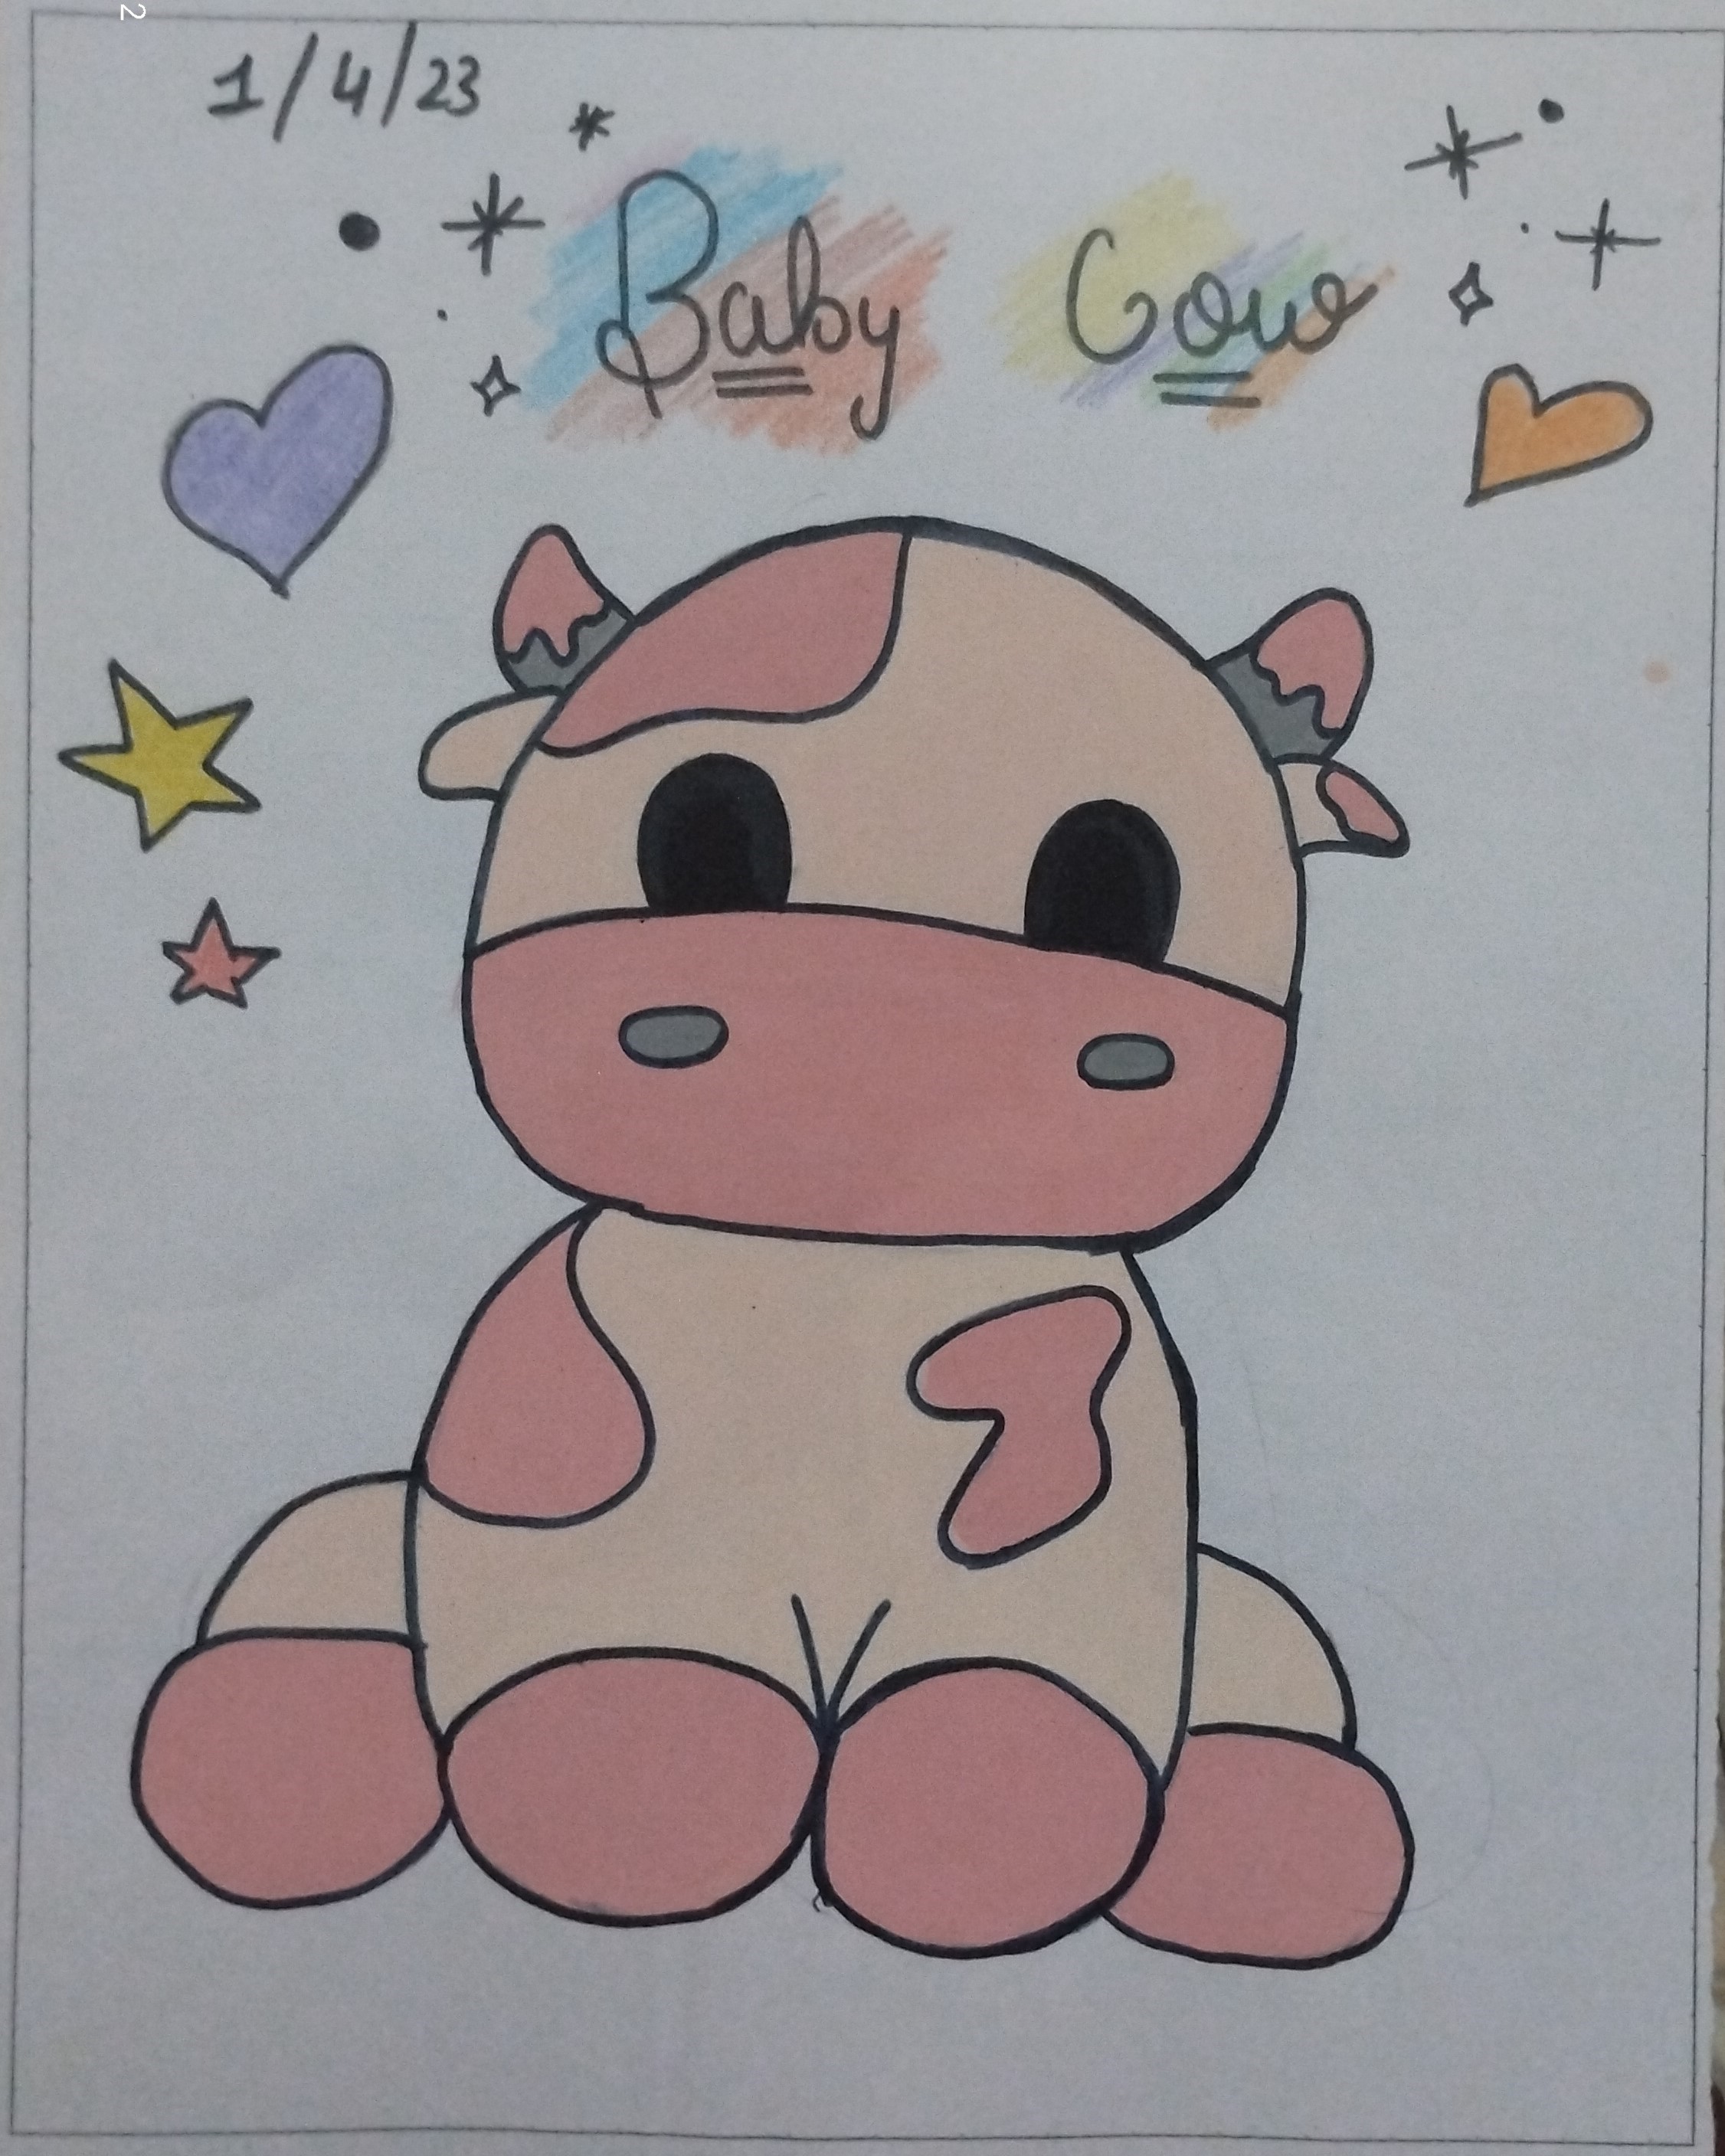 2
1/4/23
Baby Cow